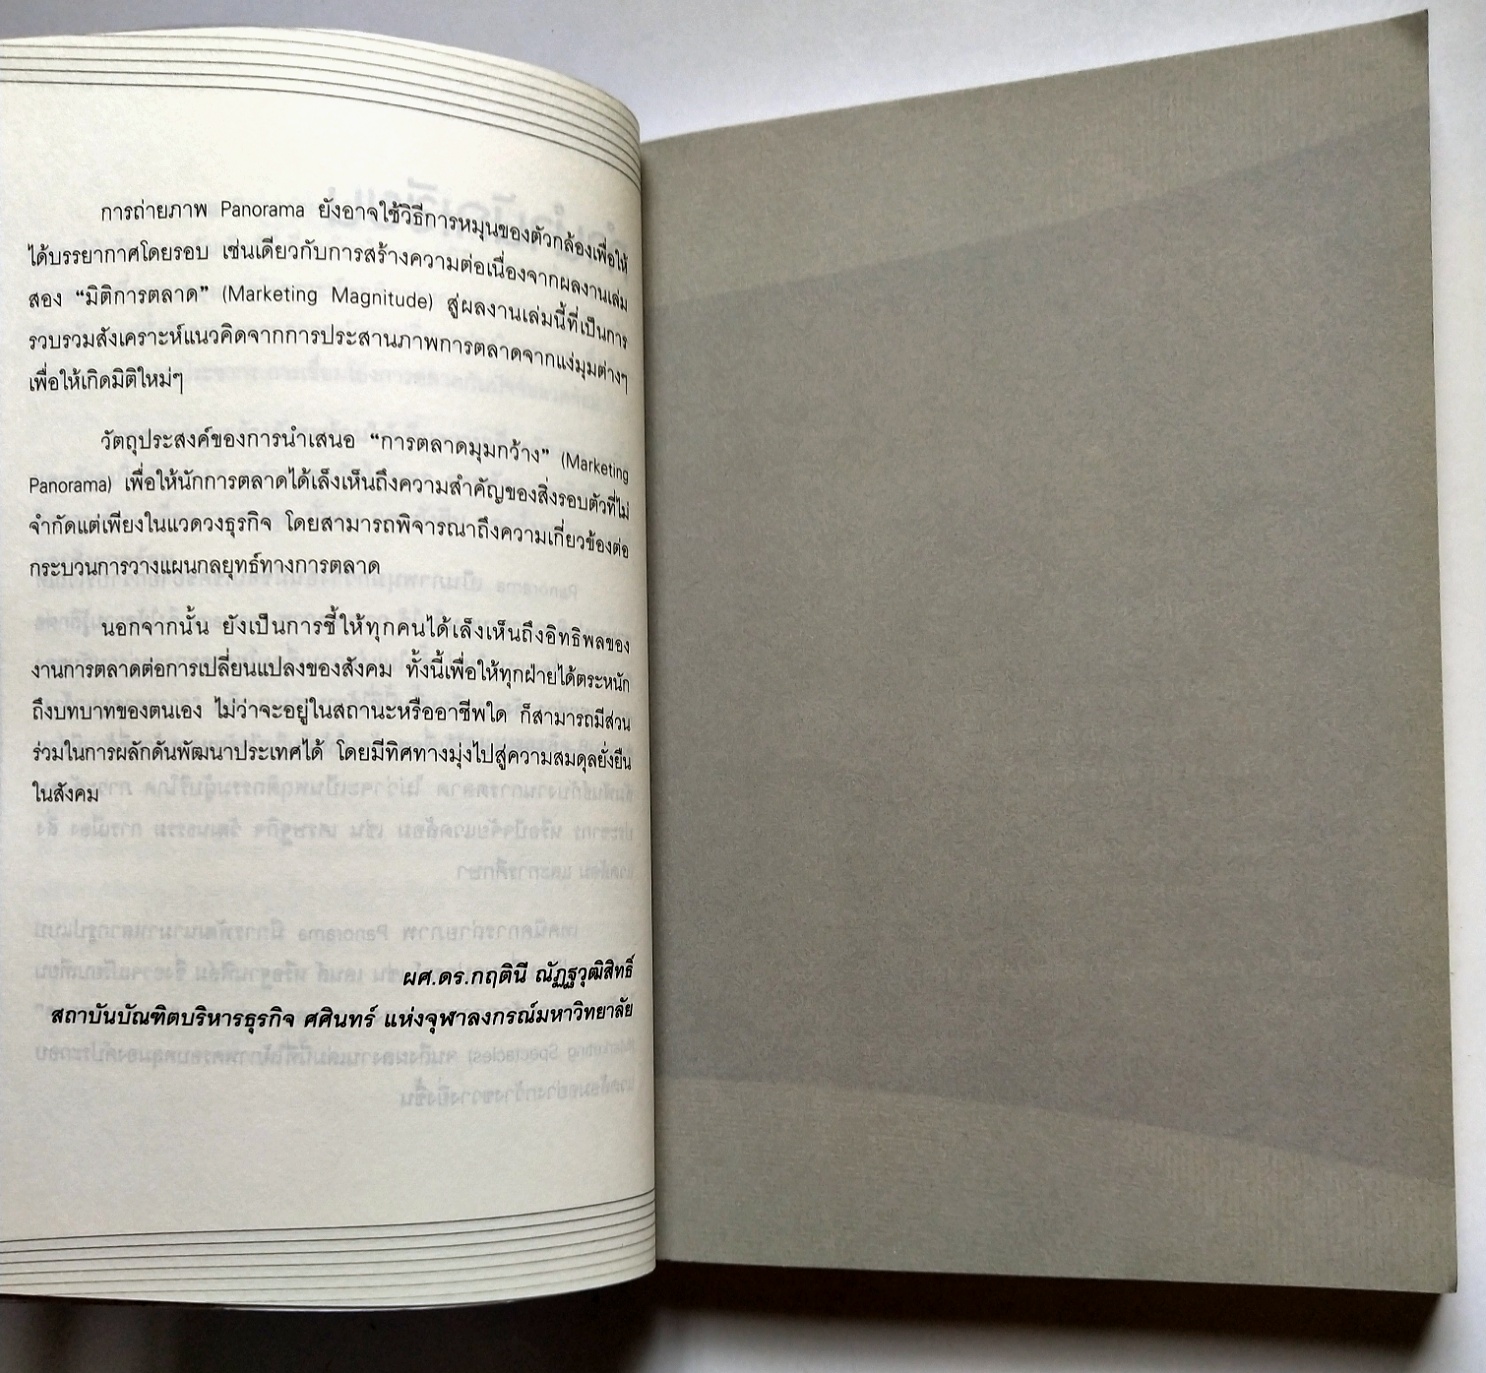 การถ่ายภาพ Panorama ยังอาจใช้วิธีการหมุนของตัวกล้องเพื่อให้
ได้บรรยากาศโดยรอบ เช่นเดียวกับการสร้างความต่อเนื่องจากผลงานเล่ม
สอง “มิติการตลาด” (Marketing Magnitude) สู่ผลงานเล่มนี้ที่เป็นการ
รวบรวมสังเคราะห์แนวคิดจากการประสานภาพการตลาดจากแง่มุมต่างๆ
เพื่อให้เกิดมิติใหม่ๆ
วัตถุประสงค์ของการนำเสนอ “การตลาดมุมกว้าง” (Marketing
Panorama) เพื่อให้นักการตลาดได้เล็งเห็นถึงความสำคัญของสิ่งรอบตัวที่ไม่
จำกัดแต่เพียงในแวดวงธุรกิจ โดยสามารถพิจารณาถึงความเกี่ยวข้องต่อ
กระบวนการวางแผนกลยุทธ์ทางการตลาด
นอกจากนั้น ยังเป็นการชี้ให้ทุกคนได้เล็งเห็นถึงอิทธิพลของ
งานการตลาดต่อการเปลี่ยนแปลงของสังคม ทั้งนี้เพื่อให้ทุกฝ่ายได้ตระหนัก
ถึงบทบาทของตนเอง ไม่ว่าจะอยู่ในสถานะหรืออาชีพใด ก็สามารถมีส่วน
ร่วมในการผลักดันพัฒนาประเทศได้ โดยมีทิศทางมุ่งไปสู่ความสมดุลยั่งยืน
ในสังคม
ผศ.ดร.กฤตินี ณัฏฐวุฒิสิทธิ์
สถาบันบัณฑิตบริหารธุรกิจ ศศินทร์ แห่งจุฬาลงกรณ์มหาวิทยาลัย